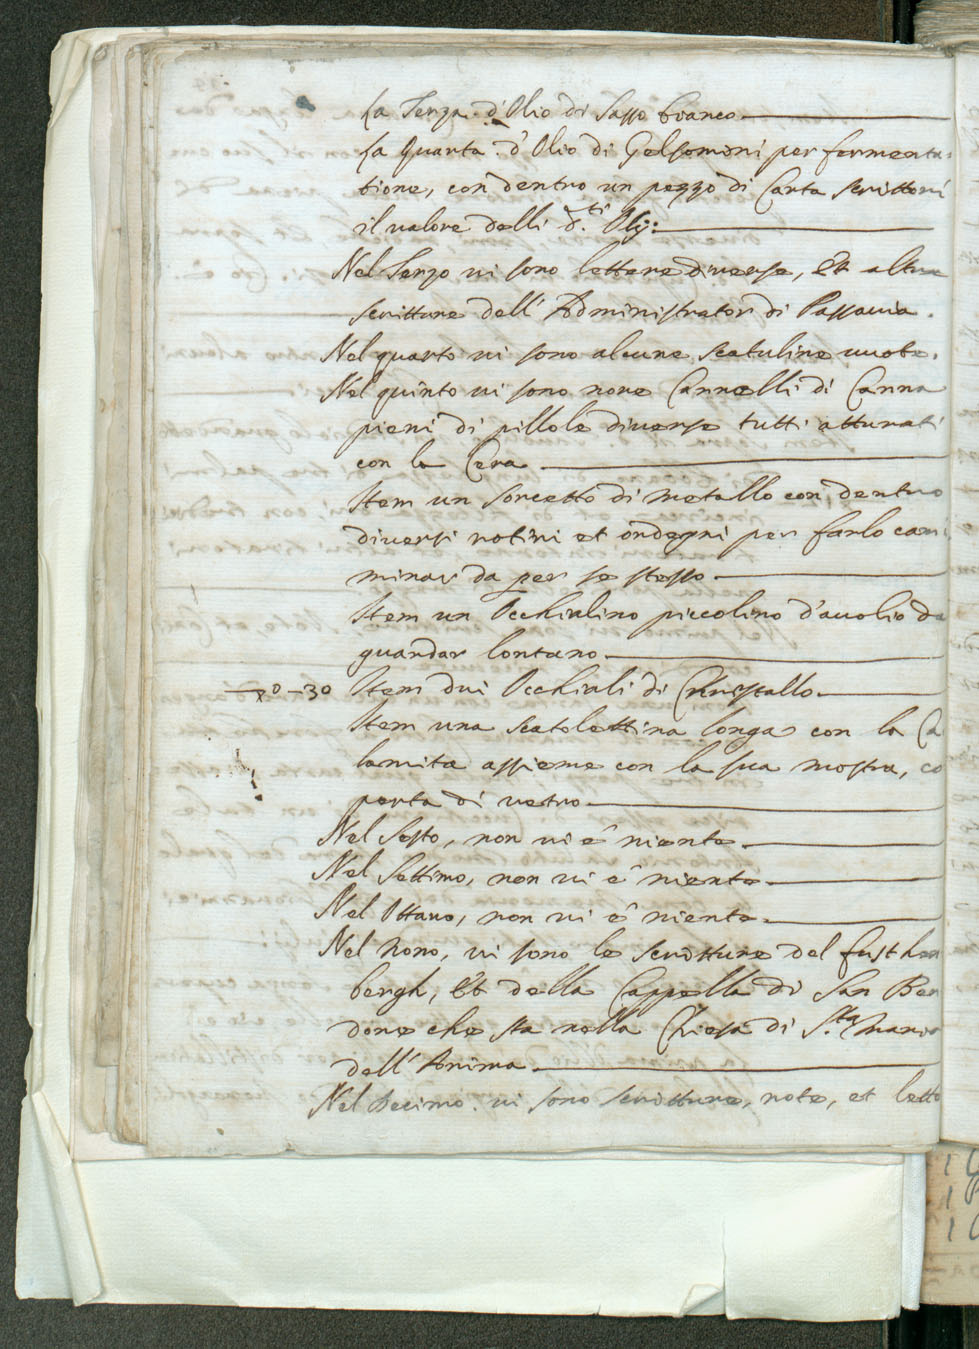 La Terza d'Olio di Sasso bianco
La Quarta d'Olio di Gelsomini per fermenta=
tione, con dentro un pezzo di Carta scrittovi
il valore delli d.ti Olij:
Nel Terzo vi sono lettere diverse, Et altre
scritture dell' Administrator di Passavia.
Nel quarto vi sono alcune scatuline vuote.
Nel quinto vi sono nove Cannelli di Canna
pieni di pillole diverse tutti atturati
con la Cera
Item un sorcetto di metallo con dentro
diversi rotini et ordegni per farlo cam=
minar da per se stesso
Item un Occhialino piccolino d'avolio da
guardar lontano
Item dui Occhiali di Christallo
Item una scatolettina longa con la Ca
lamita assieme con la sua mostra, co
perta di vetro
Nel Sesto, non vi è niente
Nel Settimo, non vi è niente
Nel Ottavo, non vi è niente
Nel Nono, vi sono le scritture del fusthen
bergh, Et della Cappella di San Ben
done che sta nella Chiesa di S.ta Maria
dell' Anima
Nel Decimo vi sono scritture, note, et lette